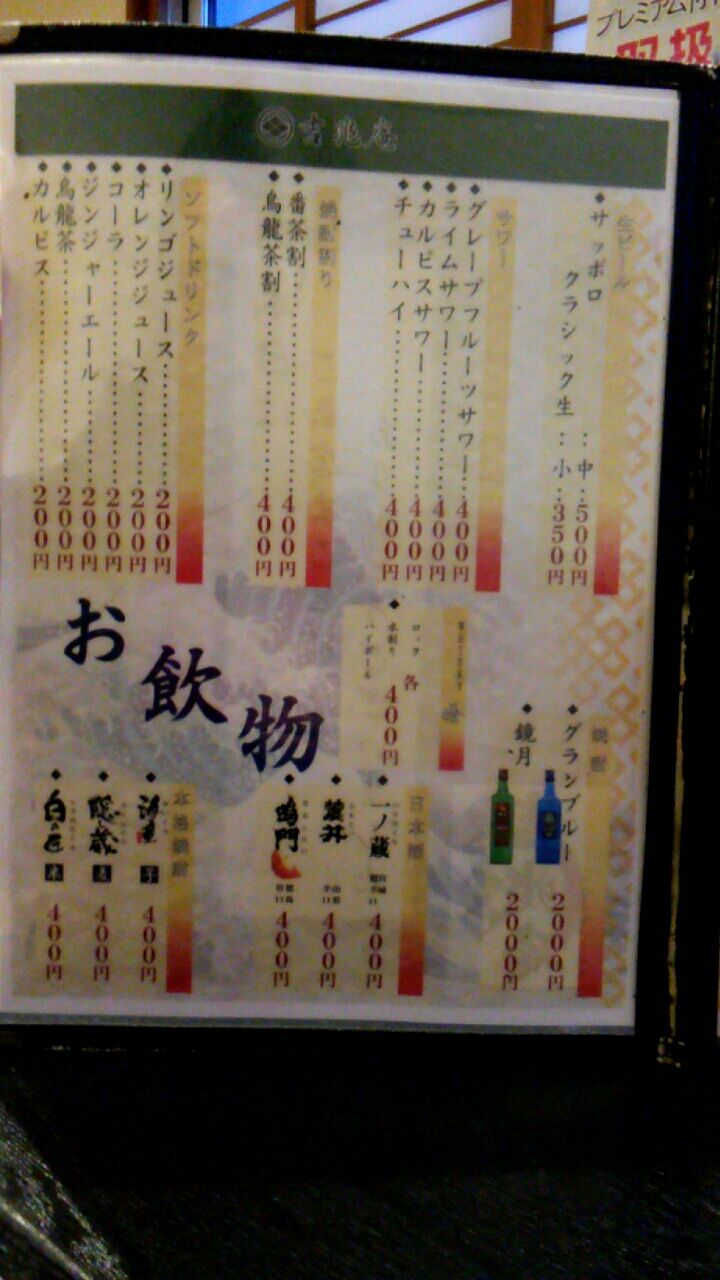 プレミアム付
取扱
吉兆庵
生ビール
サッポロ
クラシック生
中‥500円
小‥350円
サワー
グレープフルーツサワー…400円
ライムサワー…400円
カルピスサワー…400円
チューハイ…400円
焼酎割り
番茶割…400円
烏龍茶割…400円
ソフトドリンク
リンゴジュース…200円
オレンジジュース…200円
コーラ…200円
ジンジャーエール…200円
烏龍茶…200円
カルピス…200円
ロック
水割り
ハイボール
各
400円
お飲物
焼酎
グランブルー
2000円
鏡月
2000円
日本酒
一ノ蔵
宮城
400円
麓井
山形
辛口
400円
鳴門
徳島
400円
本格焼酎
芋
400円
隠し蔵
麦
400円
白の匠
米
400円